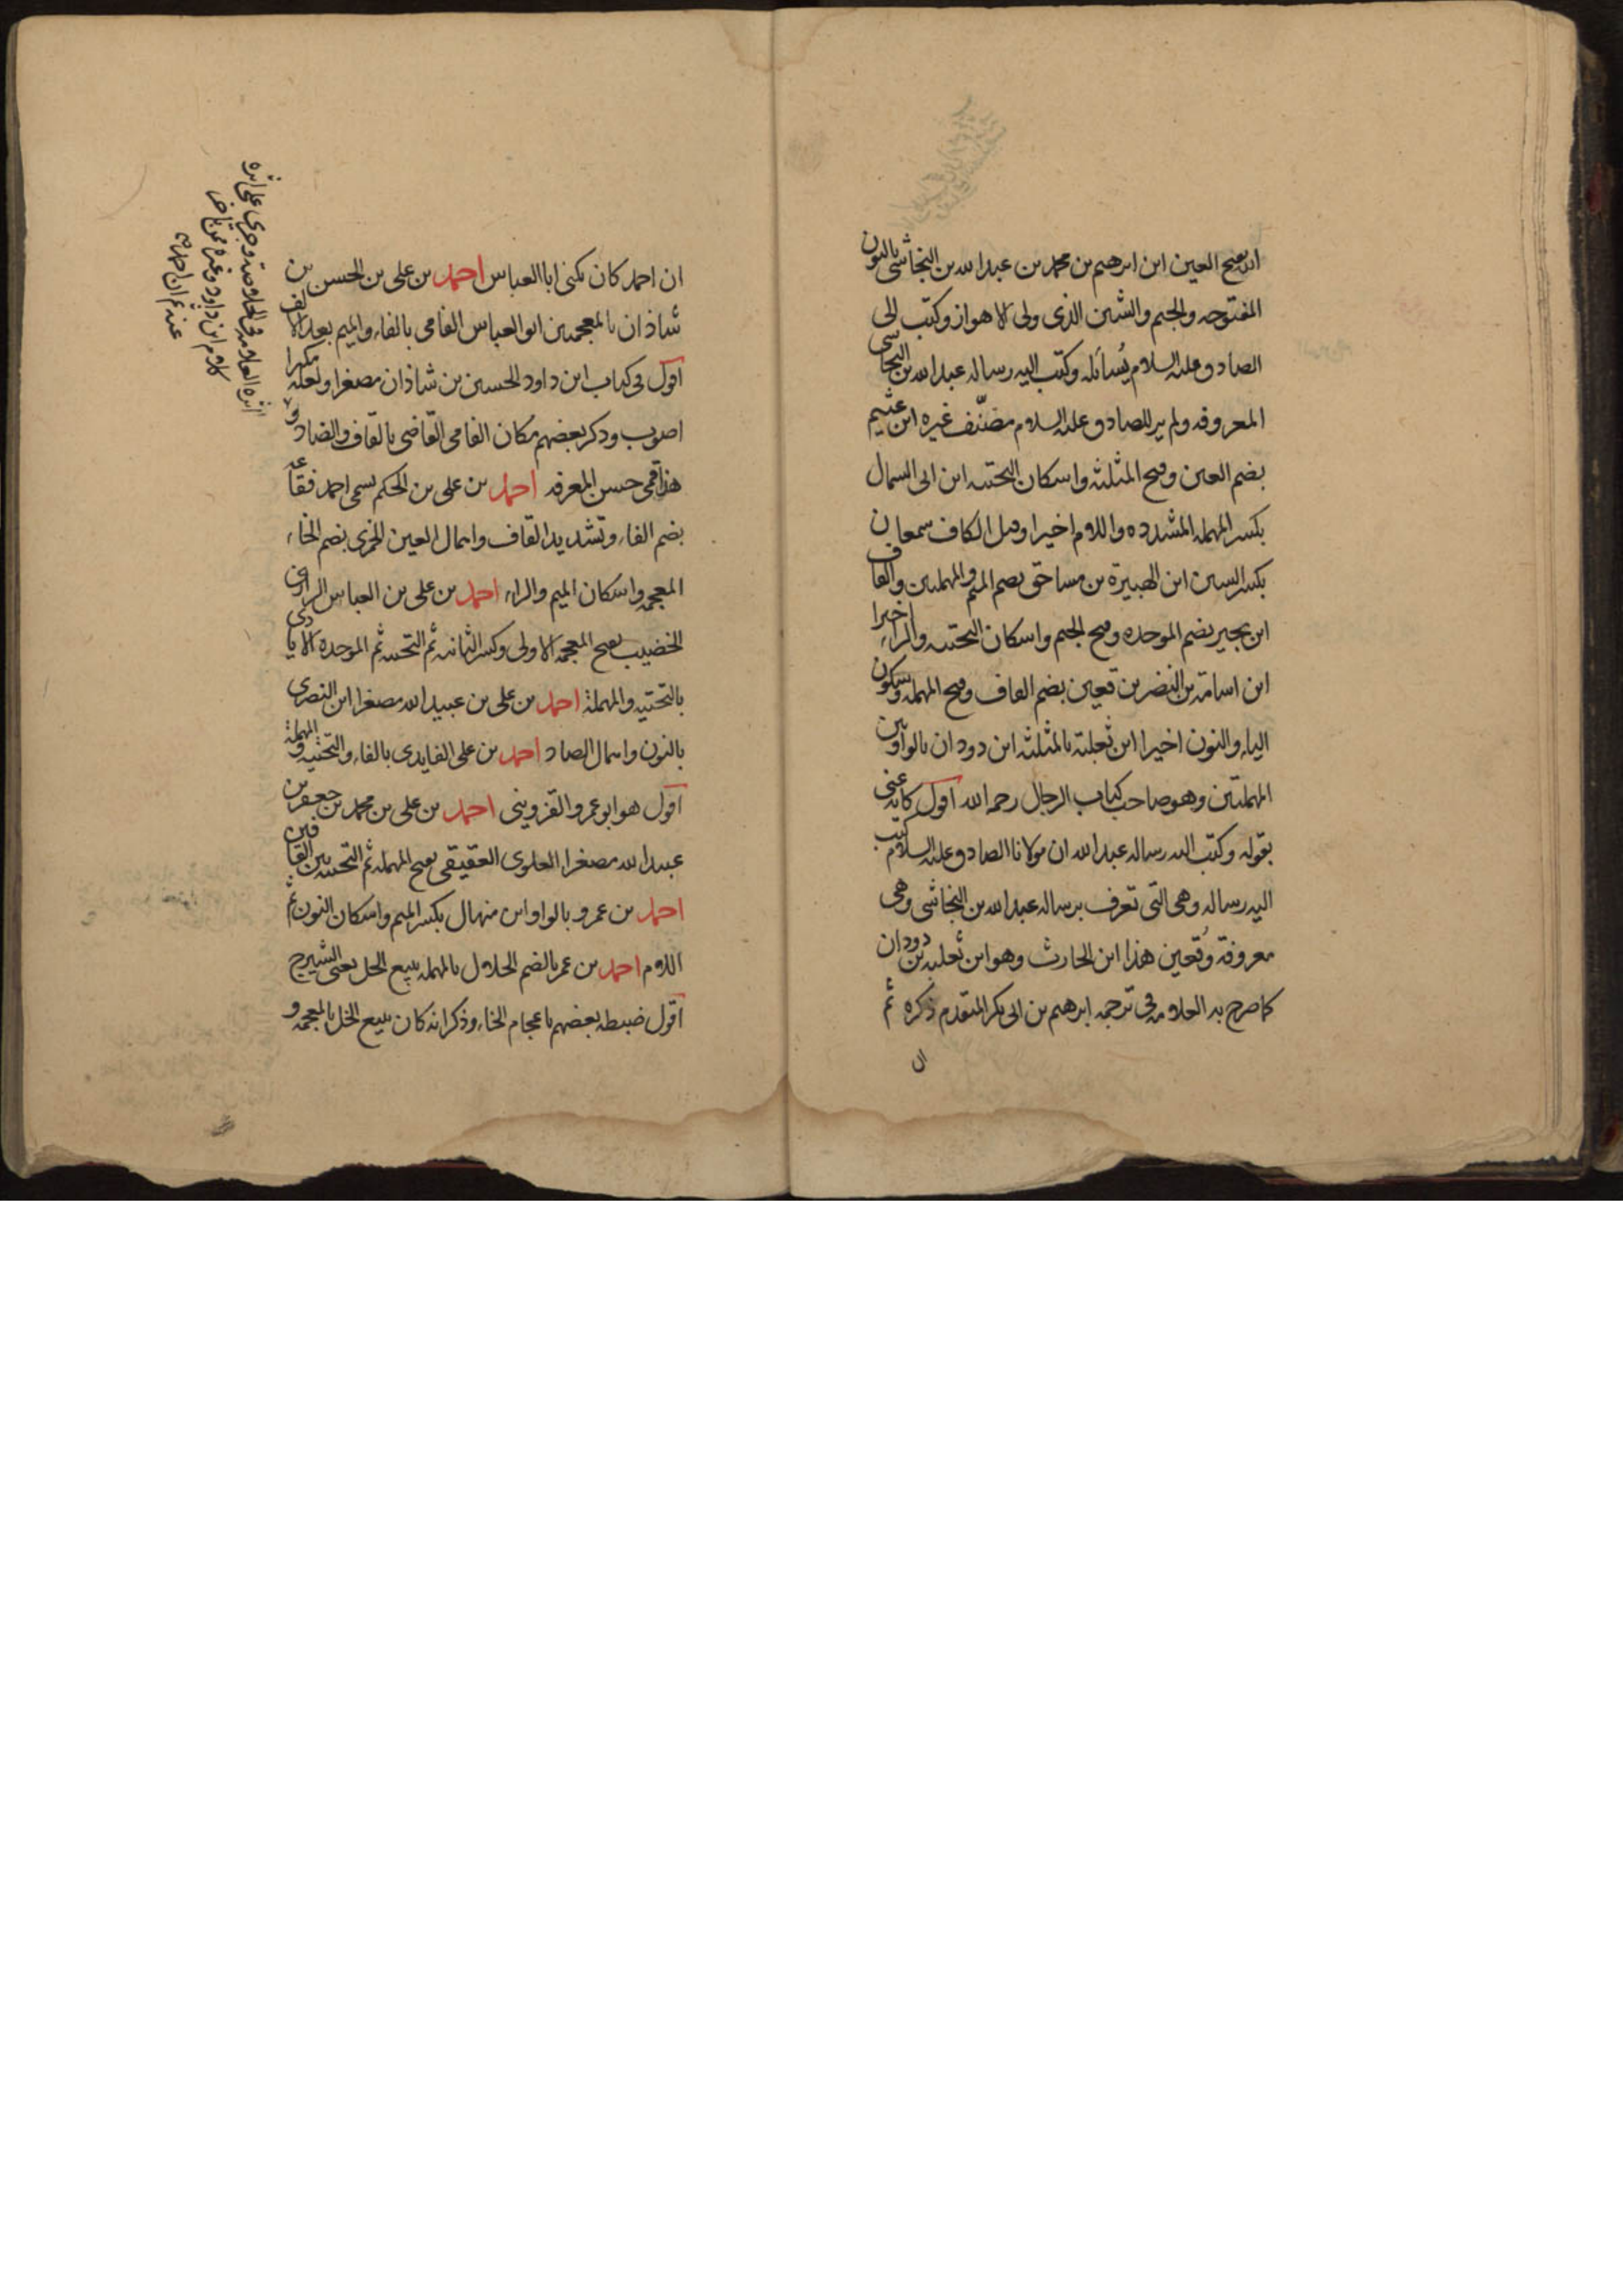 الله بفتح العين ابن ابرهيم بن محمد بن عبدالله بن النجاشي بالنون
المفتوحه والجيم والشين الذى ولى الاهواز وكتب الى
الصادق عليه السلام يُسائله وكتب اليه رسالة عبدالله بن النجاشى
المعروفه ولم ير للصادق عليه السلام مصنّف غيره ابن عثيم
بضم العين وفتح المثلثه واسكان التحتيه ابن ابى السمال
بكسر المهمله المشدده واللام اخيرا وميل الكاف سمعان
بكسر السين ابن الهبيرة بن مساحق بضم الميم والمهملتين والقاف
ابن بجير بضم الموحده وفتح الجيم واسكان التحتيه والراء اخيرا
ابن اسامة بن النضر بن قعين بضم القاف وفتح المهمله وسكون
الياء والنون اخيرا ابن ثعلبة بالمثلثه ابن دودان بالواو بين
المهملتين وهو صاحب كتاب الرجال رحمه الله اقول كانه عنى
بقوله وكتب اليه رسالة عبدالله ان مولانا الصادق عليه السلام كتب
اليه رساله وهى التى تعرف برسالة عبدالله بن النجاشى وهى
معروفة وقُعين هذا ابن الحارث وهو ابن ثعلبه بن دودان
كما صرح به العلامه فى ترجمه ابرهيم بن ابى بكر المتقدم ذكره ثم
ان
ان احمد كان يكنى ابا العباس احمد بن على بن الحسن بن
شاذان بالمعجمتين ابو العباس الفامى بالفاء والميم بعد الالف
اقول فى كتاب ابن داود الحسين بن شاذان مصغرا ولعله مكبرا
اصوب وذكر بعضهم مكان الفامى القاضى بالقاف والضاد و
هذا قمى حسن المعرفه احمد بن على بن الحكم يسمى احمد فقاعه
بضم الفاء وتشديد القاف واهمال العين الخمرى بضم الخاء
المعجمه واسكان الميم والراء احمد بن على بن العباس الرازى
الخضيب بفتح المعجمه الاولى وكسر الثانيه ثم التحتيه ثم الموحده الايادى
بالتحتيه والمهملة احمد بن على بن عبيدالله مصغرا ابن النصرى
بالنون واهمال الصاد احمد بن على الفايدى بالفاء والتحتيه والمهملة
اقول هو ابو عمرو القزوينى احمد بن على بن محمد بن جعفر بن
عبيدالله مصغرا العلوى العقيقى بفتح المهمله ثم التحتيه بين القافين
احمد بن عمرو بالواو ابن منهال بكسر الميم واسكان النون ثم
اللام احمد بن عمر بالضم الحلال بالمهمله يبيع الحل يعنى الشيرج
اقول ضبطه بعضهم باعجام الخاء وذكر انه كان يبيع الخل بالمعجمه و
العلامه فى الخلاصه وجرى على اثره
كلام ابن داود وغيره ممن تاخر
عنه ثم ان احمد